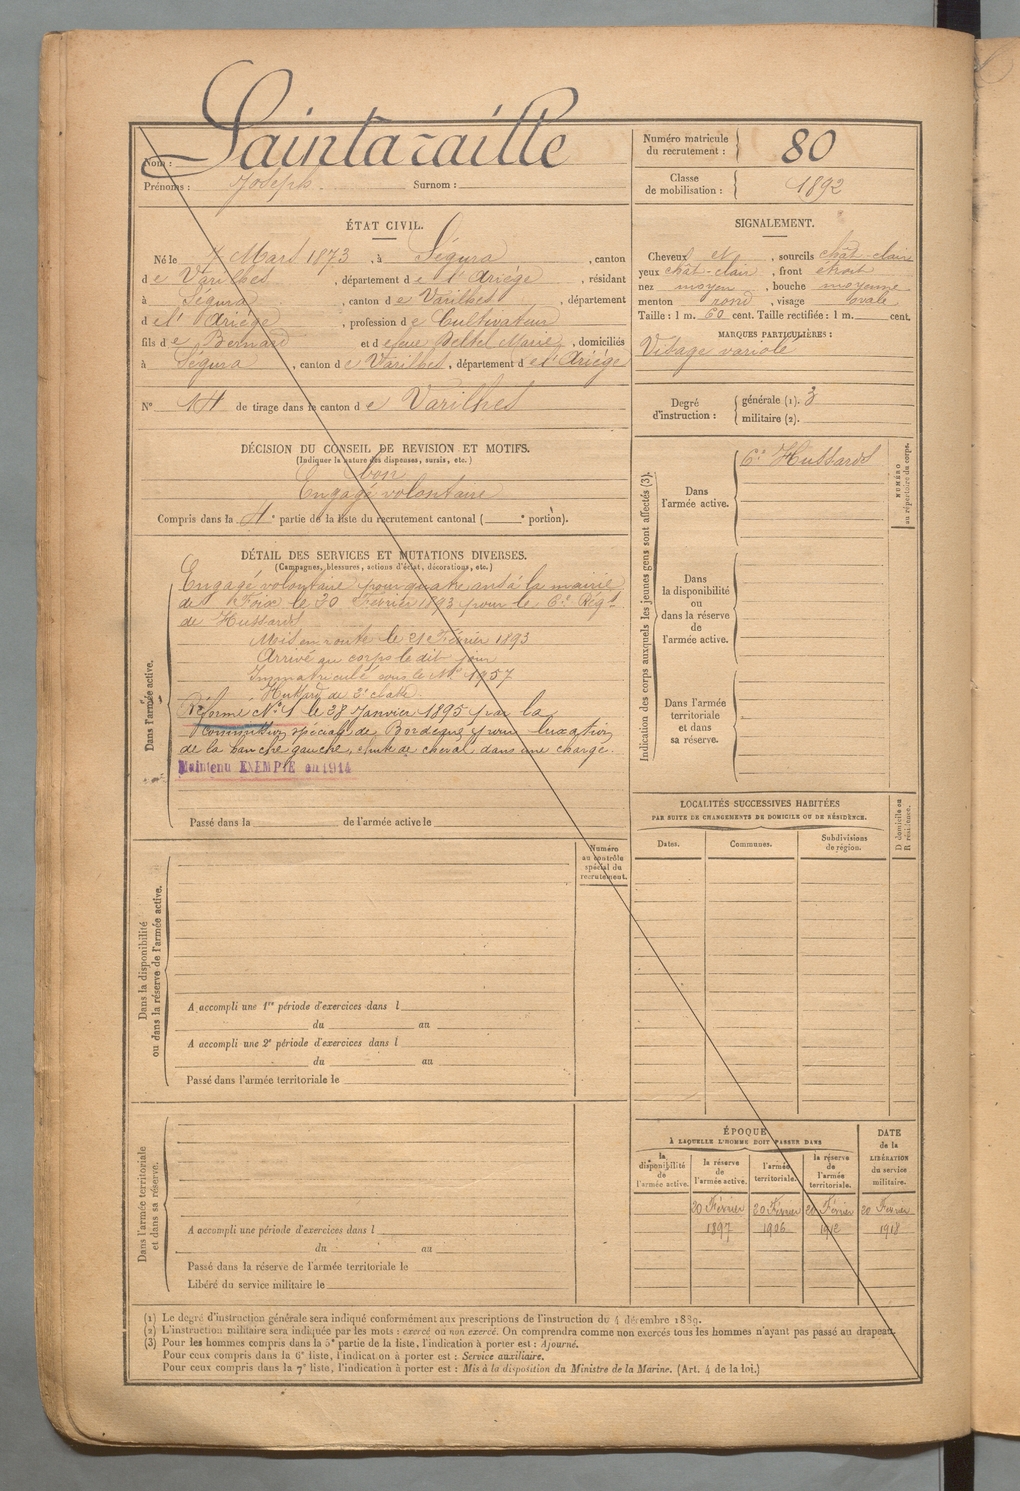 Nom : Saintaraille
Prénoms : Joseph Surnom :
Numéro matricule du recrutement : 80
Classe de mobilisation : 1892
ÉTAT CIVIL.
Né le 7 Mars 1873, à Ségura, canton
de Varilhes, département de l'Ariège, résidant
à Ségura, canton de Varilhes, département
de l'Ariège, profession de Cultivateur
fils de Bernard et de feue Marie, domiciliés
à Ségura, canton de Varilhes, département de l'Ariège
N° 14 de tirage dans le canton de Varilhes
SIGNALEMENT.
Cheveux et, sourcils chât-clairs
yeux chât-clair, front étroit
nez moyen, bouche moyenne
menton rond, visage ovale
Taille : 1 m. 60 cent. Taille rectifiée : 1 m. cent.
MARQUES PARTICULIÈRES :
Visage variolé
Degré d'instruction : générale (1). 3
militaire (2).
DÉCISION DU CONSEIL DE REVISION ET MOTIFS.
(Indiquer la nature des dispenses, sursis, etc.)
bon
Engagé volontaire
Compris dans la 4e partie de la liste du recrutement cantonal ( e portion).
DÉTAIL DES SERVICES ET MUTATIONS DIVERSES.
(Campagnes, blessures, actions d'éclat, décorations, etc.)
Dans l'armée active.
Engagé volontaire pour quatre ans à la mairie
de Foix le 20 Février 1893 pour le 6e Régt
de Hussards
Mis en route le 21 Février 1893
Arrivé au corps le dit jour
Immatriculé sous le No 1957
Hussard de 2e classe.
Réformé No 1 le 28 Janvier 1895 par la
Commission spéciale de Bordeaux pour luxation
de la hanche gauche, chute de cheval dans une charge.
Maintenu EXEMPTE en 1914
Passé dans la de l'armée active le
Indication des corps auxquels les jeunes gens sont affectés (3).
NUMÉRO au répertoire du corps.
Dans l'armée active.
6e Hussards
Dans la disponibilité ou dans la réserve de l'armée active.
Dans l'armée territoriale et dans sa réserve.
LOCALITÉS SUCCESSIVES HABITÉES
PAR SUITE DE CHANGEMENTS DE DOMICILE OU DE RÉSIDENCE.
D domicile ou R résidence.
Dates. Communes. Subdivisions de région.
Numéro au contrôle spécial du recrutement.
Dans la disponibilité ou dans la réserve de l'armée active.
A accompli une 1re période d'exercices dans l
du au
A accompli une 2e période d'exercices dans l
du au
Passé dans l'armée territoriale le
Dans l'armée territoriale et dans sa réserve.
A accompli une période d'exercices dans l
du au
Passé dans la réserve de l'armée territoriale le
Libéré du service militaire le
ÉPOQUE
À LAQUELLE L'HOMME DOIT PASSER DANS
la disponibilité de l'armée active.
la réserve de l'armée active.
l'armée territoriale.
la réserve de l'armée territoriale.
DATE de la LIBÉRATION du service militaire.
20 Février 20 Février 20 Février 20 Février
1897 1906 1912 1918
(1) Le degré d'instruction générale sera indiqué conformément aux prescriptions de l'instruction du 4 décembre 1889.
(2) L'instruction militaire sera indiquée par les mots : exercé ou non exercé. On comprendra comme non exercés tous les hommes n'ayant pas passé au drapeau.
(3) Pour les hommes compris dans la 5e partie de la liste, l'indication à porter est : Ajourné.
Pour ceux compris dans la 6e liste, l'indication à porter est : Service auxiliaire.
Pour ceux compris dans la 7e liste, l'indication à porter est : Mis à la disposition du Ministre de la Marine. (Art. 4 de la loi.)